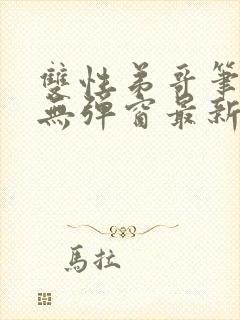 雙性弟哥筆
無彈窗最新
馬拉